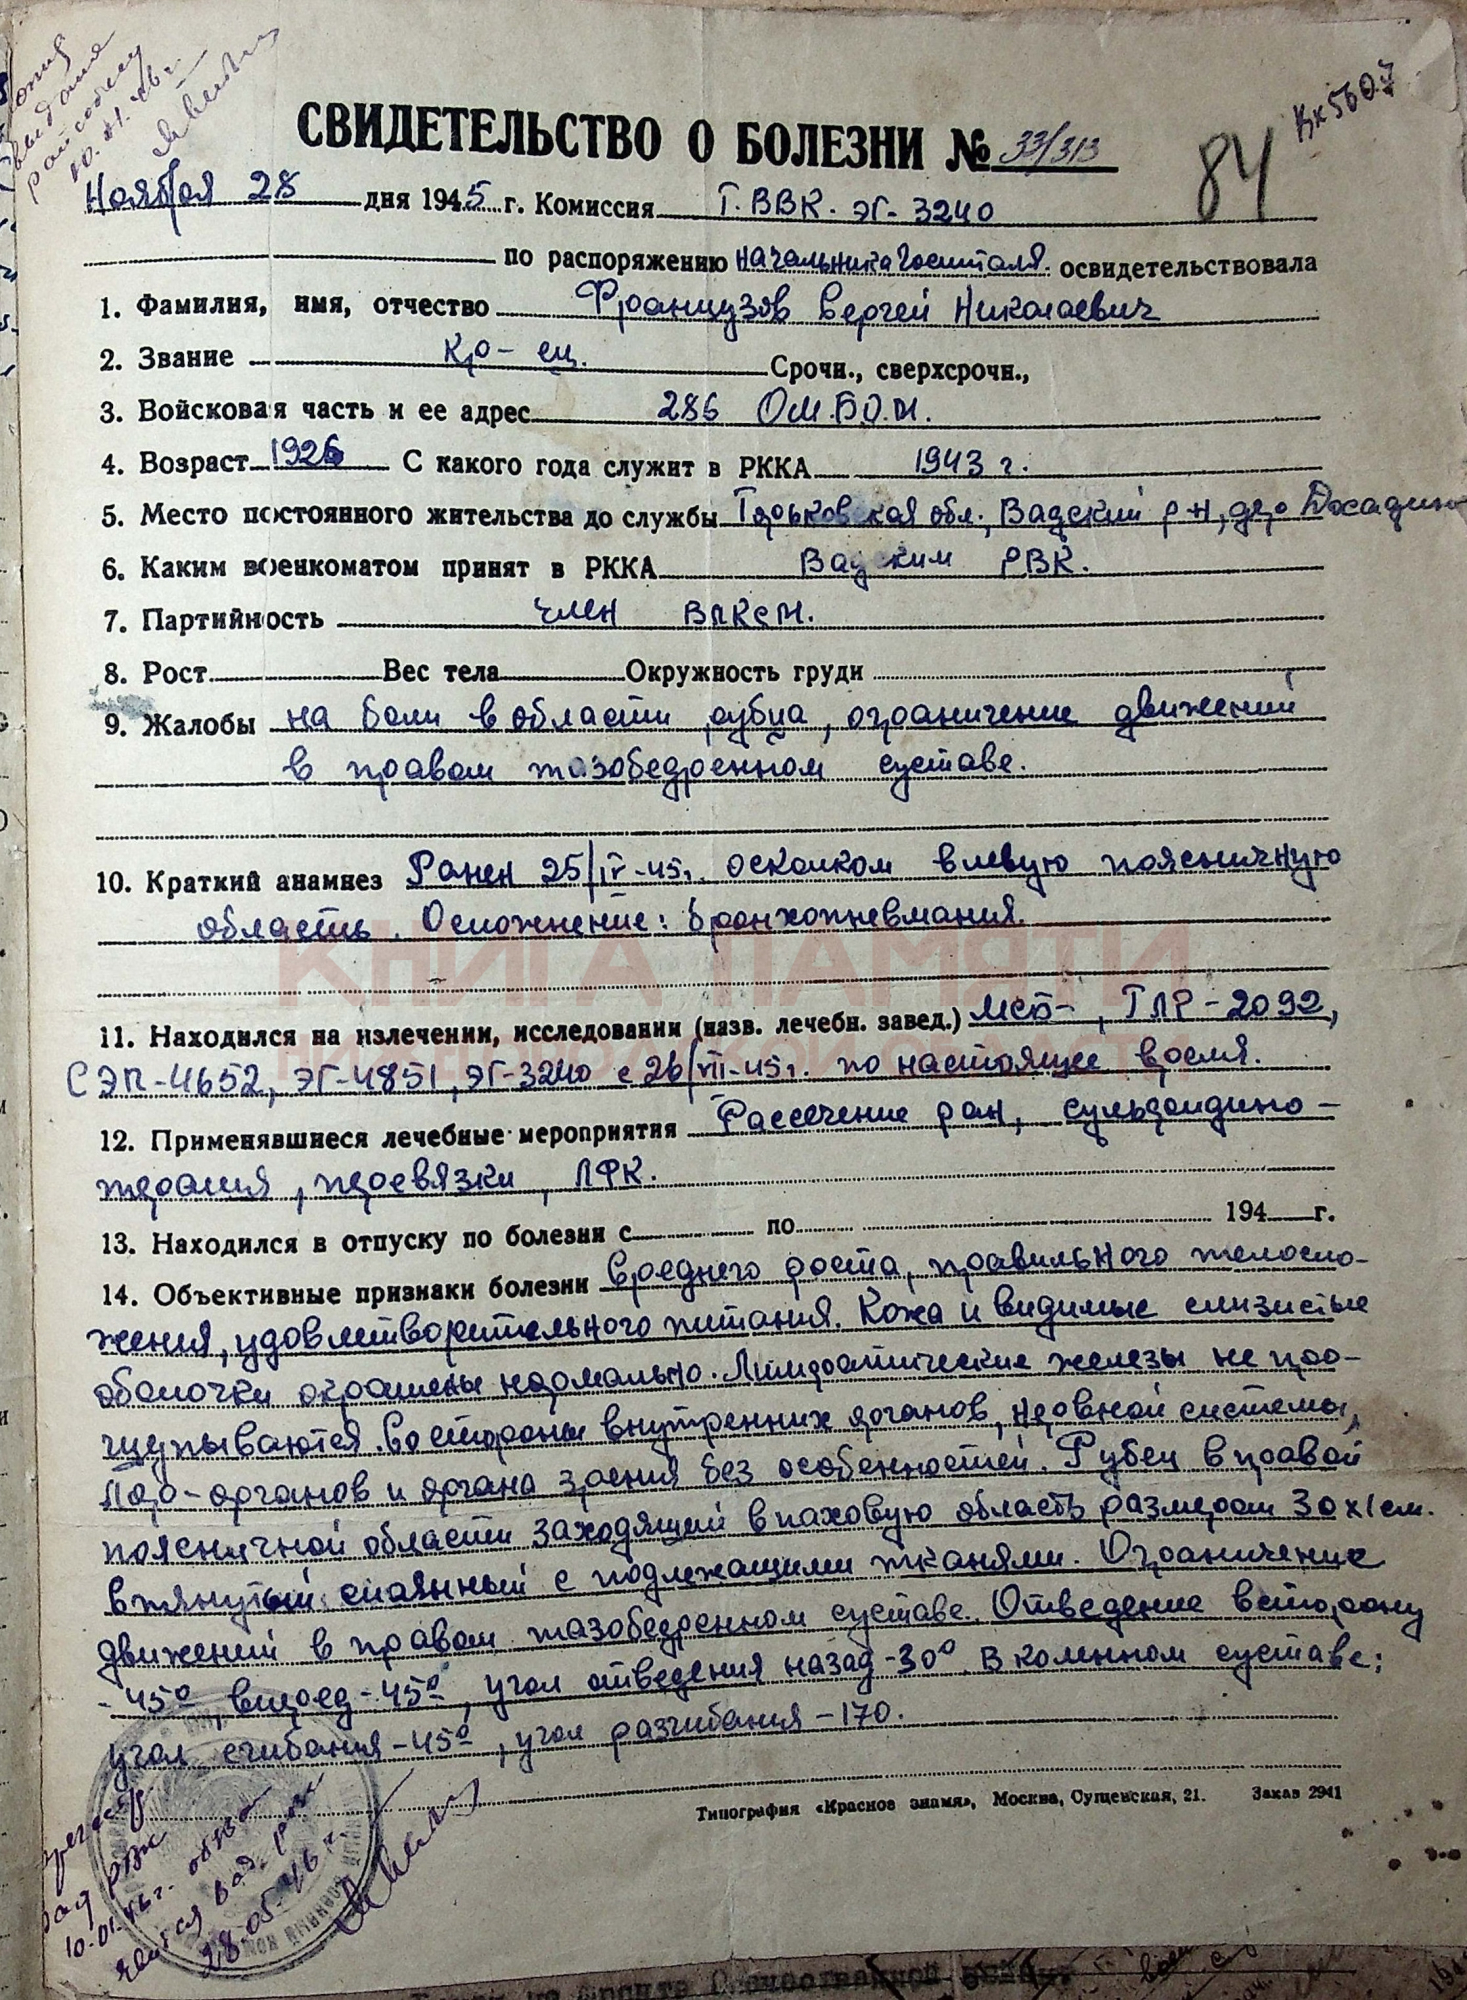 копия
выдана
райсобесу
10.01.46 г.
Кх5607
84
СВИДЕТЕЛЬСТВО О БОЛЕЗНИ № 33/313
Ноября 28 дня 1945 г. Комиссия Г.ВВК. ЭГ-3240
по распоряжению начальника госпиталя освидетельствовала
1. Фамилия, имя, отчество Французов Сергей Николаевич
2. Звание кр-ец. Срочн., сверхсрочн.,
3. Войсковая часть и ее адрес 286 О.М.Б.О.Н.
4. Возраст 1926 С какого года служит в РККА 1943 г.
5. Место постоянного жительства до службы Горьковская обл., Вадский р-н, дер
6. Каким военкоматом принят в РККА Вадским РВК.
7. Партийность член ВЛКСМ.
8. Рост Вес тела Окружность груди
9. Жалобы на боли в области рубца, ограничение движений
в правом тазобедренном суставе.
10. Краткий анамнез Ранен 25/IV-45г. осколком в левую поясничную
область. Осложнение: бронхопневмания.
КНИГА ПАМЯТИ
НИЖЕГОРОДСКОЙ ОБЛАСТИ
11. Находился на излечении, исследовании (назв. лечебн. завед.) МСБ-, ГЛР-2092,
СЭП-4652, ЭГ-4851, ЭГ-3240 с 26/VII-45г. по настоящее время.
12. Применявшиеся лечебные мероприятия Рассечение ран, сульфоидино-
терапия, перевязки, ЛФК.
13. Находился в отпуску по болезни с по 194 г.
14. Объективные признаки болезни Среднего роста, правильного телосло-
жения, удовлетворительного питания. Кожа и видимые слизистые
оболочки окрашены нормально. Лимфоатические железы не про-
щупываются. Со стороны внутренних органов, нервной системы,
Лор-органов и органа зрения без особенностей. Рубец в правой
поясничной области заходящий в паховую область размером 30х1см.
втянутый спаянный с подлежащими тканями. Ограничение
движений в правом тазобедренном суставе. Отведение в сторону
-45°, вперед-45°, угол отведения назад-30°. В коленном суставе:
угол сгибания-45°, угол разгибания-170.
Типография «Красное знамя», Москва, Сущевская, 21. Заказ 2941
10.01.46 г.
28-05-46 г.